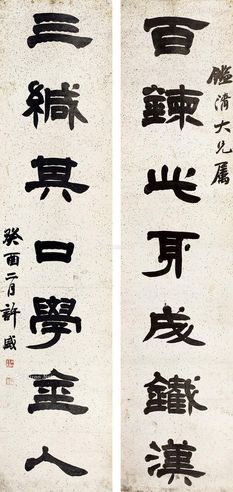 鑑清大兄属
百鍊此身成鐵漢
三緘其口學金人
癸酉二月許盛